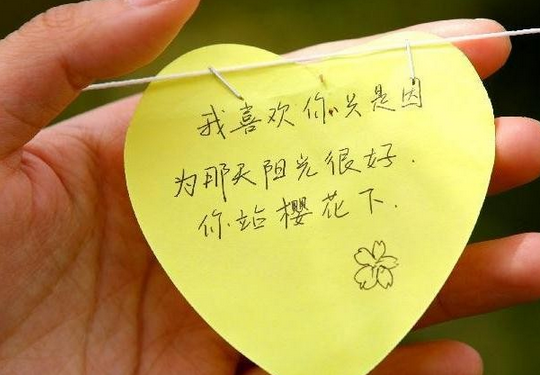 我喜欢你,只是因
为那天阳光很好.
你站樱花下.